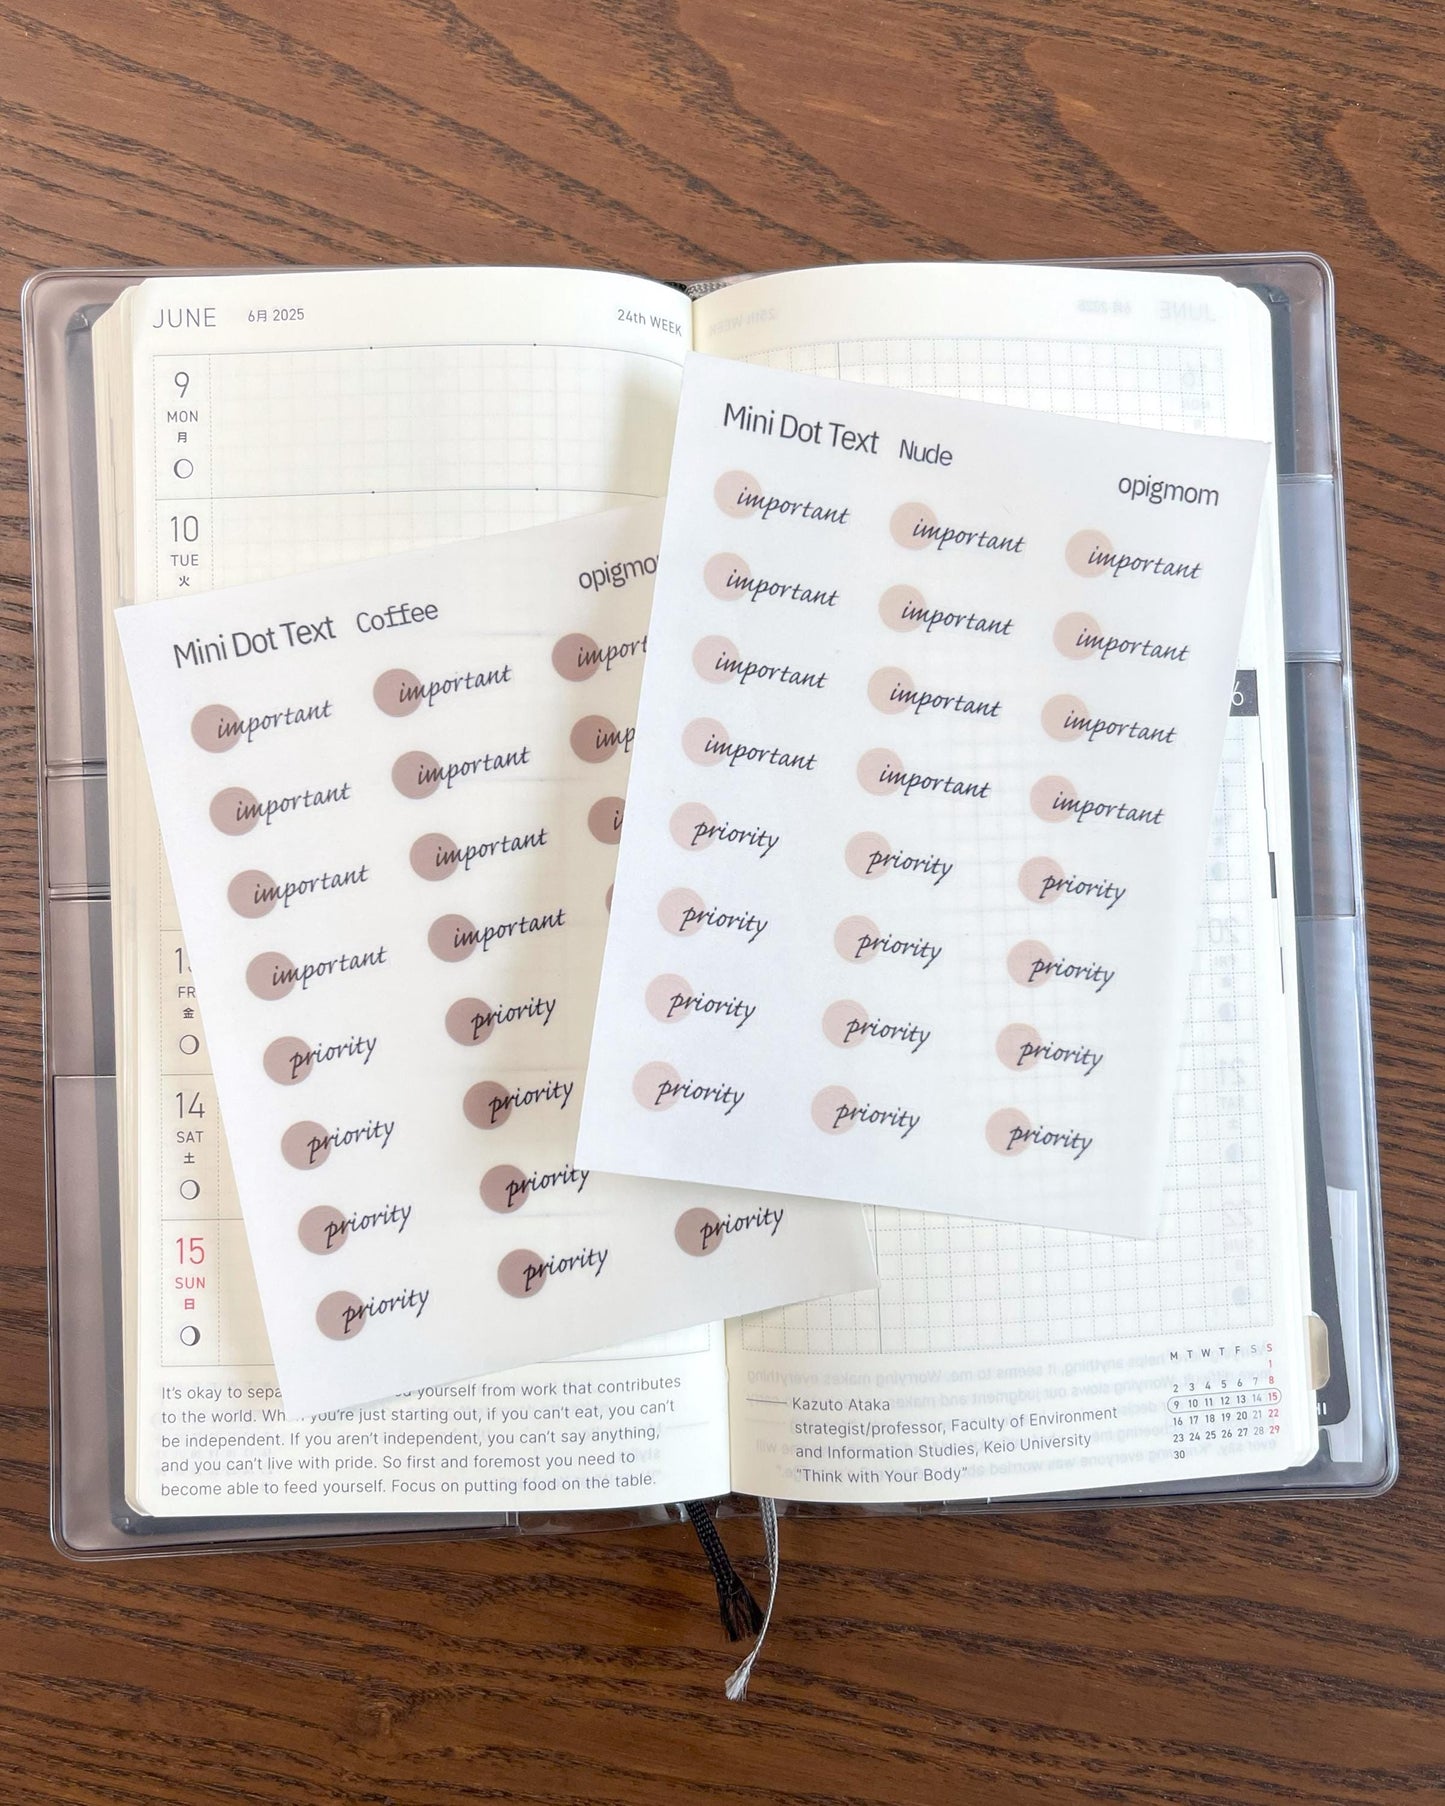 JUNE 6月 2025 24th WEEK
9
MON
月
10
TUE
火
FR
金
14
SAT
土
15
SUN
日
Mini Dot Text Coffee
important important
important important
important important
important important
priority priority
priority priority
priority priority
priority priority priority
Mini Dot Text Nude opigmom
important important important
important important important
important important important
important important important
priority priority priority
priority priority priority
priority priority priority
priority priority priority
It's okay to yourself from work that contributes
to the world. you're just starting out, if you can't eat, you can't
be independent. If you aren't independent, you can't say anything,
and you can't live with pride. So first and foremost you need to
become able to feed yourself. Focus on putting food on the table.
Kazuto Ataka
strategist/professor, Faculty of Environment
and Information Studies, Keio University
"Think with Your Body"
M T W T F S S
1
2 3 4 5 6 7 8
9 10 11 12 13 14 15
16 17 18 19 20 21 22
23 24 25 26 27 28 29
30